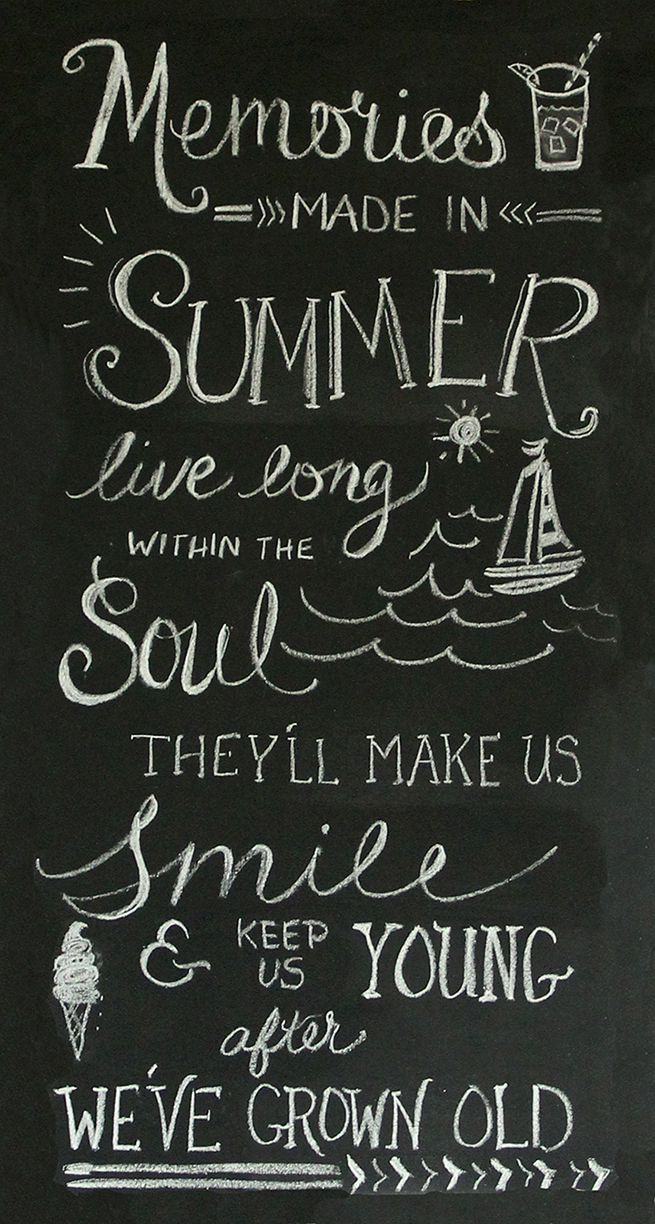 Memories
MADE IN
SUMMER
live long
WITHIN THE
Soul
THEY'LL MAKE US
Smile
& KEEP US YOUNG
after
WE'VE GROWN OLD